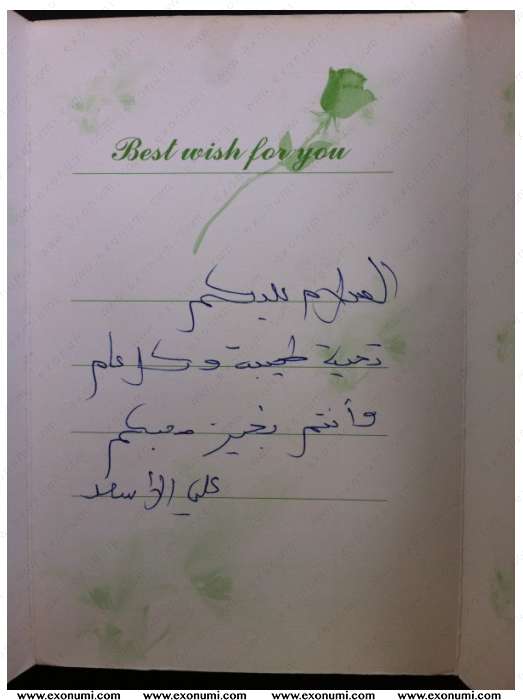 Best wish for you
السلام عليكم
تحية طيبة وكل عام
وأنتم بخير محبكم
علي الأسعد
www.exonumi.com www.exonumi.com www.exonumi.com www.exonumi.com